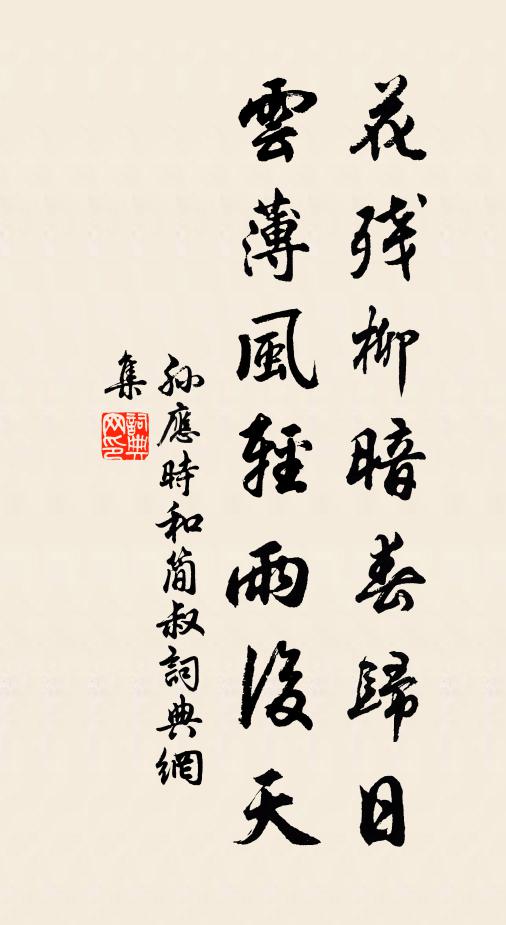 花残柳暗春歸日
雲薄風輕雨後天
孙應時和簡叔詞典網
集
詞典
网印